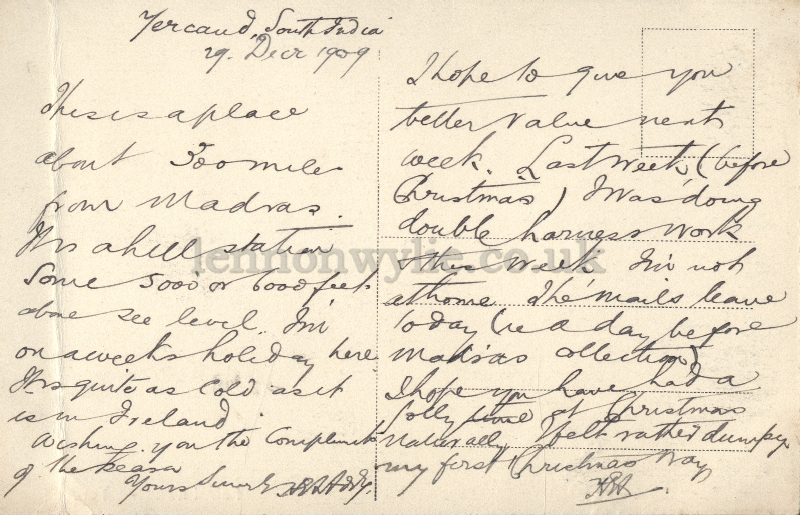 Yercaud, South India
29. Decr 1909
This is a place
about 300 miles
from Madras.
It is a hill station
some 5000 or 6000 feet
above see level. I'm
on a weeks holiday here
It is quite as cold as it
is in Ireland.
Wishing you the Compliments
of the season
Yours Sincerely
I hope to give you
better value next
week. Last week (before
Christmas) I was doing
double harness work
& this week I'm not
at home The mails leave
today (ie a day before
Madras collection)
I hope you have had a
jolly time at Christmas
Naturally I felt rather dumpy
my first Christmas away
lennonwylie.co.uk